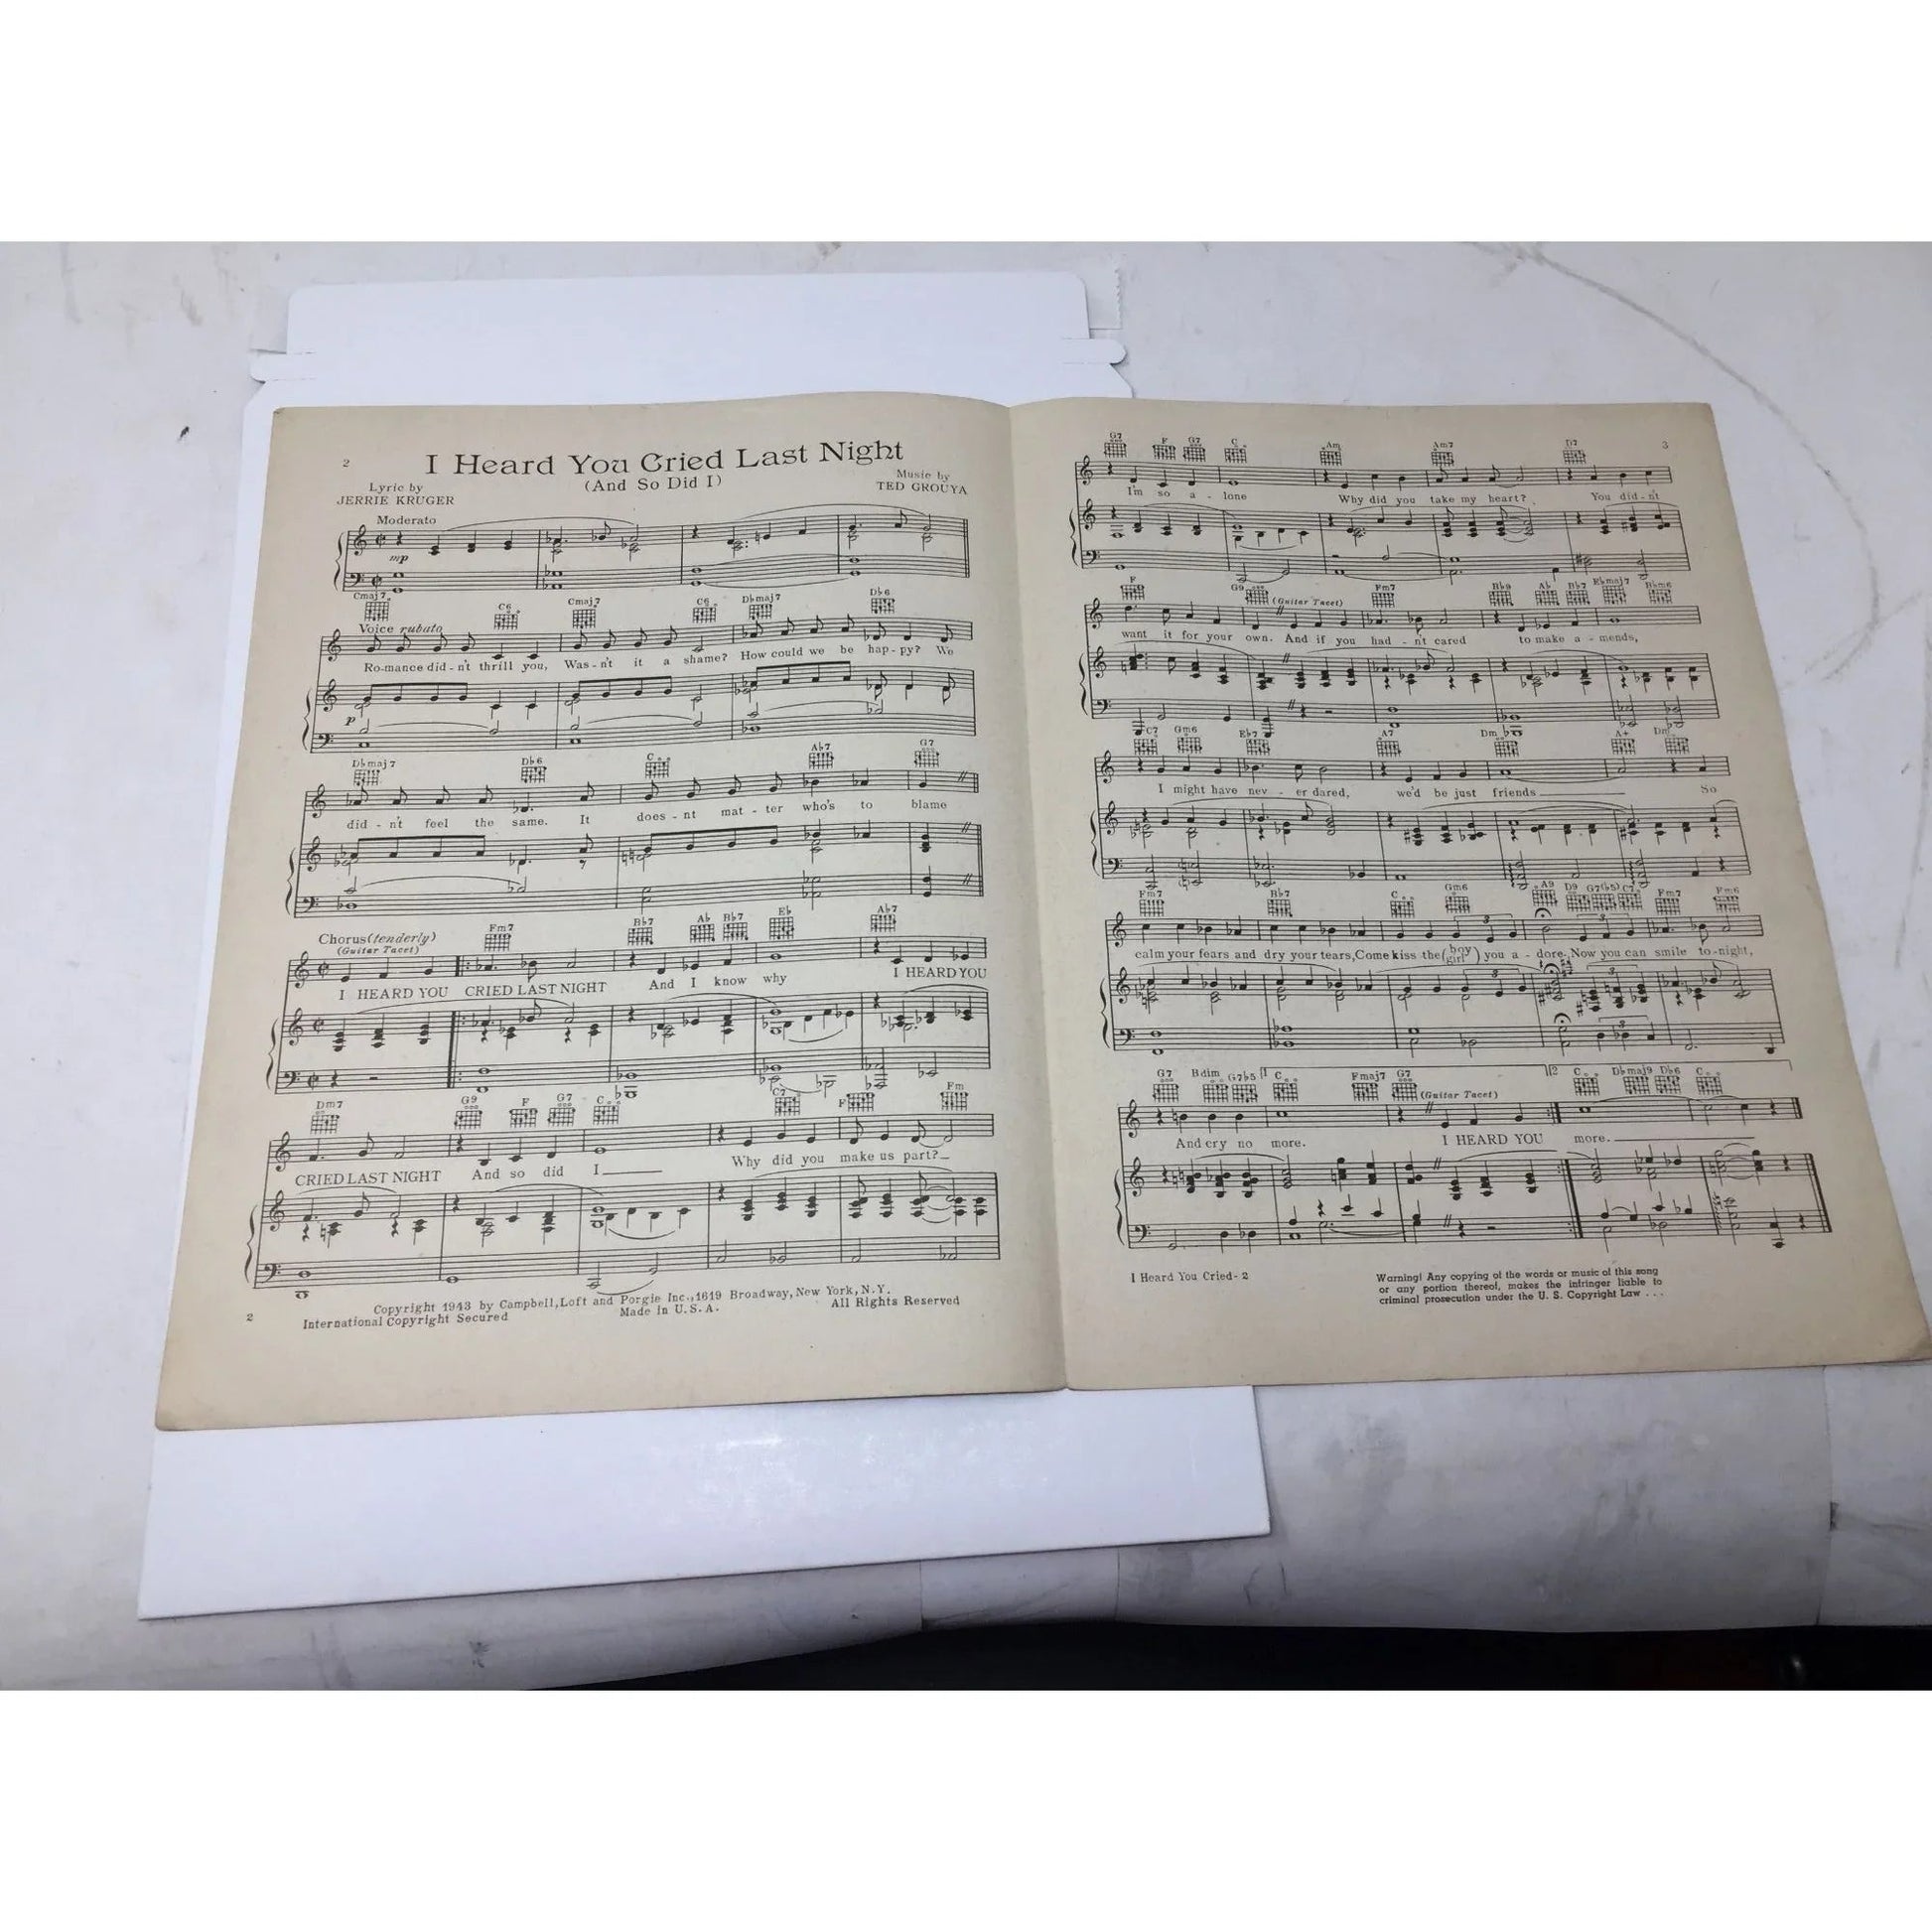 2
I Heard You Cried Last Night
(And So Did I)
Lyric by
JERRIE KRUGER
Music by
TED GROUYA
Moderato
mp
Cmaj7 C6 Cmaj7 C6 Dbmaj7 Db6
Voice rubato
Ro-mance did-n't thrill you, Was-n't it a shame? How could we be hap-py? We
p
Dbmaj7 Db6 C Ab7 G7
did-n't feel the same. It does-nt mat-ter who's to blame
Chorus (tenderly)
(Guitar Tacet)
Fm7 Bb7 Ab Bb7 Eb Ab7
I HEARD YOU CRIED LAST NIGHT And I know why I HEARD YOU
Dm7 G9 F G7 C C7 F Fm
CRIED LAST NIGHT And so did I Why did you make us part?
Copyright 1943 by Campbell, Loft and Porgie Inc., 1619 Broadway, New York, N.Y.
International Copyright Secured Made in U.S.A. All Rights Reserved
2
3
G7 F G7 C Am Am7 D7
I'm so a-lone Why did you take my heart? You did-n't
F G9 (Guitar Tacet) Fm7 Bb9 Ab Bb7 Ebmaj7 Bbm6
want it for your own. And if you had-n't cared to make a-mends,
C7 Gm6 Eb7 A7 Dm A+ Dm
I might have nev-er dared, we'd be just friends So
Fm7 Bb7 C Gm6 A9 D9 G7(b5) C7 Fm7 Fm6
calm your fears and dry your tears, Come kiss the (boy girl) you a-dore, Now you can smile to-night,
G7 Bdim G7b5 1 C Fmaj7 G7 (Guitar Tacet) 2 C Dbmaj9 Db6 C
And cry no more. I HEARD YOU more.
I Heard You Cried-2
Warning! Any copying of the words or music of this song
or any portion thereof, makes the infringer liable to
criminal prosecution under the U. S. Copyright Law . . .